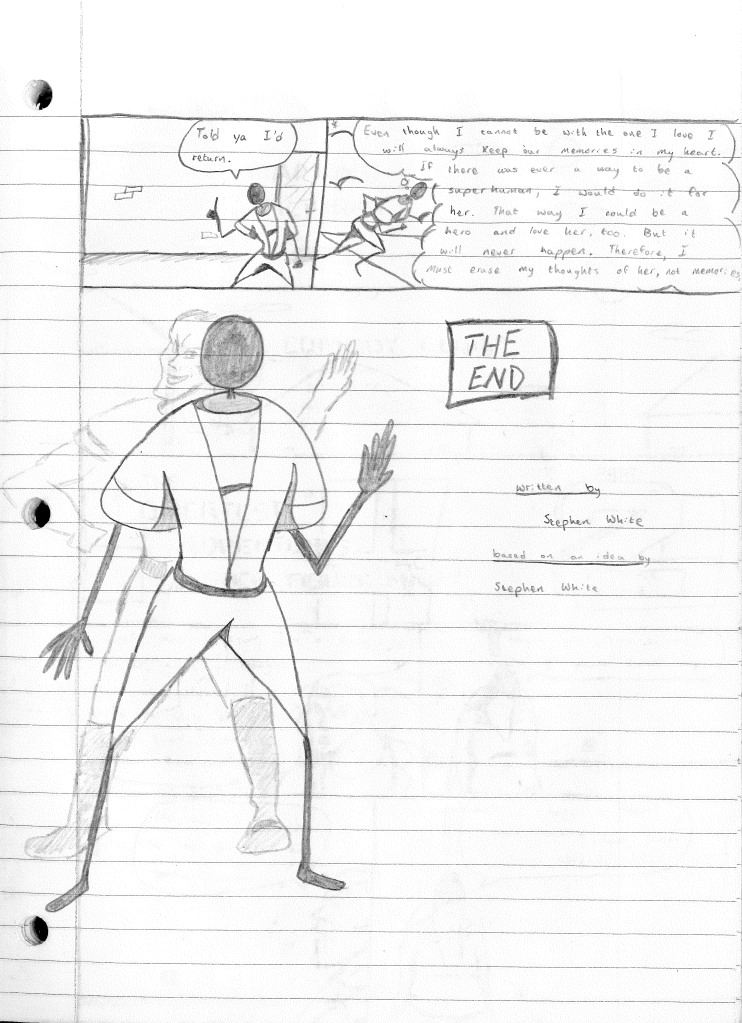 Told ya I'd
return.
Even though I cannot be with the one I love I
will always keep our memories in my heart.
If there was ever a way to be a
superhuman, I would do it for
her. That way I could be a
hero and love her, too. But it
will never happen. Therefore, I
must erase my thoughts of her, not memories
THE
END
written by
Stephen White
based on an idea by
Stephen White